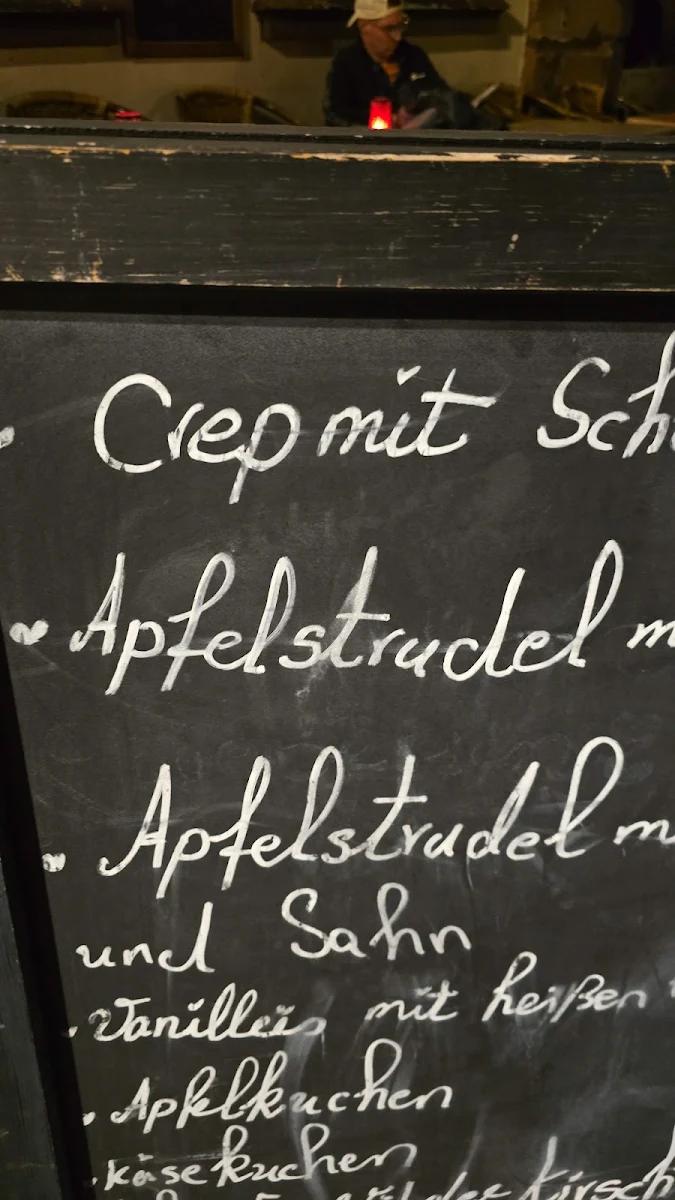 Crep mit Sch
Apfelstrudel m
Apfelstrudel m
und Sahn
Vanilleis mit heißen
Apfelkuchen
Käsekuchen